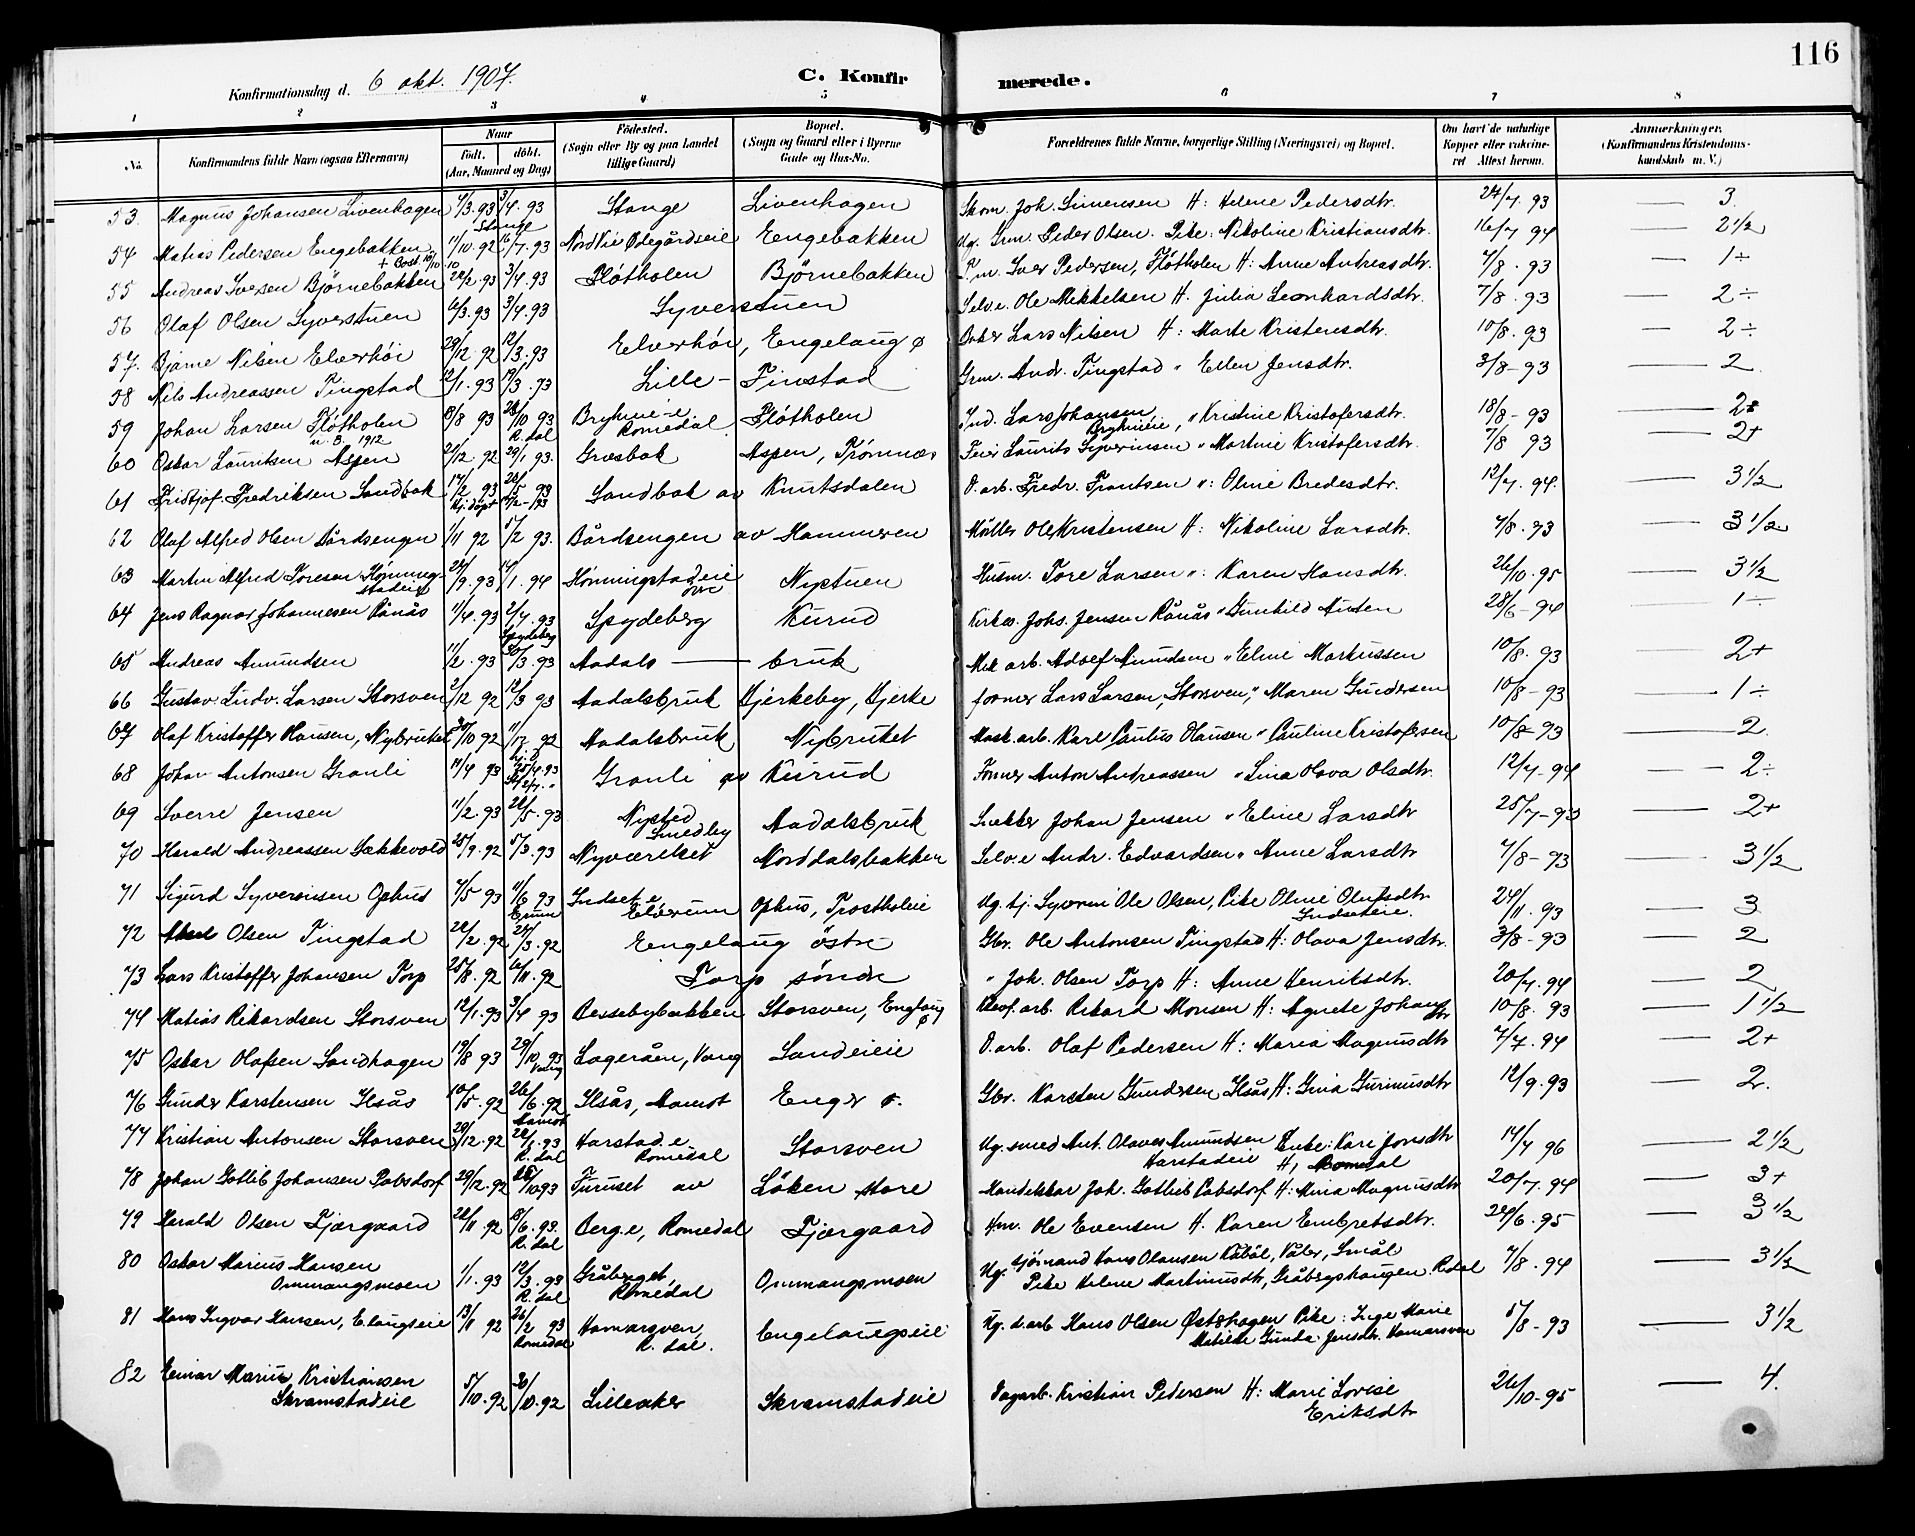 116
Konfirmationsdag d. 6 okt. 1907.
C. Konfirmerede.
1 2 3 4 5 6 7 8
No. Konfirmandens fulde Navn (ogsaa Efternavn)
Naar født. døbt. (Aar, Maaned og Dag)
Fødested. (Sogn eller By og paa Landet tillige Gaard)
Bopæl. (Sogn og Gaard eller i Byerne Gade og Hus-No.
Forældrenes fulde Navne, borgerlige Stilling (Næringsvei) og Bopæl.
Om havt de naturlige Kopper eller vakcineret Attest herom.
Anmærkninger. (Konfirmandens Kristendomskundskab m. V.)
53. Magnus Johansen Livenhagen 4/3.93 3/4.93 Stange Stange Livenhagen Skom. Joh. Simensen H: Helene Pedersdtr. 24/7.93 — 3.
54 Matias Pedersen Engebakken 11/10.92 16/7.93 Nord Kie Ødegårdseie Engebakken Ug. Grm. Peder Olsen. Pike: Nikoline Kristiansdtr. 16/7 94 — 2 1/2
55 Andreas Iversen Bjørnebakken 3/4.93 Fløtholen Bjørnebakken Iver Pedersen, Fløtholen H: Anne Andreasdtr. 7/8.93 — 1 ÷
56 Olaf Olsen Syverstuen 6/3.93 3/4.93 Syverstuen Selv.e. Ole Mikkelsen H. Julia Leonhardsdtr. 7/8.93 — 2 ÷
57. Bjarne Nilsen Elverhøi 29/12 92 12/3.93 Elverhøi, Engelaug ø Baker Lars Nilsen H: Marte Kristensdtr. 10/8.93 — 2 ÷
58 Nils Andreassen Tingstad 12/1.93 19/3.93 Lille-Finstad Grm. Andr. Tingstad " Ellen Jensdtr. 3/8-93 — 2
59 Johan Larsen Fløtholen 8/8 93 R.dal Romedal Fløtholen Ind. Lars Johansen, " Kristine Kristofersdtr. 18/8-93 — 2+
60 Oskar Lauritsen Aspen 21/12 92 29/1 93. Græsbak Aspen, Trønnæs Feier Laurits Syverinsen " Martine Kristofersdtr. 7/8 93 — 2+
61 Fristjof Fredriksen Sandbak 17/2 93 28/5 93 Sandbak av Knutsdalen D.arb. Fredr. Frantsen ": Oline Bredesdtr. 12/7.94. — 3 1/2
62 Olaf Alfred Olsen Bårdsengen 1/11 92 5/2 93. Bårdsengen av Hammeren Møller Ole Kristensen H: Nikoline Larsdtr. 7/8.93 — 3 1/2
63 Martin Alfred Toresen Hønningstadeie 24/9.93 14/1.94 Hønningstadeie Nystuen Husm. Tore Larsen ": Karen Hansdtr. 26/10.95 — 3 1/2
64 Jens Ragnar Johannesen Rånås 11/4.93 2/7.93 Spydeberg Spydeberg Kurud Johs. Jensen Rånås " Gunhild Auten 28/6-94 — 1 ÷
65 Andreas Amundsen 11/2.93 30/3.93 Aadals — bruk Mek arb. Adolf Amundsen " Eline Markussen 10/8.93 — 2+
66 Gustav Ludv. Larsen Storsven 2/12 92 12/3 93 Aadalsbruk Hjerkeby, Hjerke former Lars Larsen, Storsven, " Maren Gundersen 10/8-93 — 1 ÷
67 Olaf Kristoffer Hansen, Nybruket 30/10 92 Aadalsbruk Nybruket Mask.arb. Karl Paulus Hansen " Pauline Kristofersen 10/8-93 — 2.
68 Johan Antonsen Granli 14/4 93 Granli av Kurud Former Anton Andreassen " Lina Olava Olsdtr. 12/7-94 — 2 ÷
69 Sverre Jensen 11/2.93 28/5.93 Nysted Smedby Aadalsbruk Snekker Johan Jensen " Eline Larsdtr 25/7-93 — 2+
70 Harald Andreassen Sækkevold 25/9.92 5/3.93 Nyværelset Norddalsbakken Selv.e Andr. Edvardsen " Anne Larsdtr 7/8-93 — 3 1/2
71 Sigurd Syverinsen Ophus 7/5 93 11/6 93 Indset.e Elverum Ophus, Trostholeie Ug. tj. Syverin Ole Olsen, Pike Oline Olufsdtr Indseteie. 24/11.93 — 3
72 Olsen Tingstad 22/2.92 27/3.92 Engelaug östre Gbr. Ole Antonsen Tingstad H: Olava Jensdtr. 3/8-93 — 2
73 Lars Kristoffer Johansen Torp 25/8.92 6/11.92 Torp söndre " Joh. Olsen Torp H: Anne Henriksdtr. 20/7.94 — 2
74 Matias Rikardsen Storsven 12/1.93 3/4 93 Bessebybakken Storsven, Englaug ø Rikard Monsen H: Agnete Johansdtr 10/8.93 — 1 1/2
75 Oskar Olafsen Sandhagen 19/8 93 29/10.93 Vang Lageråen, Vang Sandeieie D.arb. Olaf Pedersen H: Maria Magnusdtr 7/7.94 — 2+
76 Gunder Karstensen Ilsås 10/5.92 26/6.92 Aamot Ilsås, Aamot Enger ø. Gbr. Karsten Gundersen Ilsås H: Gina Gurinusdtr 12/9.93 — 2.
77 Kristian Antonsen Storsven 29/12.92 R.dal Harstad.e Romedal Storsven Ug. smed Ant. Olaves Amundsen Enke: Kari Jonsdtr Harstadeie Romedal 14/7 96 — 2 1/2
78 Johan Gotlib Johansen Pabsdorf 29/12.92 Furuset av Løken store Handelskar Joh. Gotlieb Pabsdorf H: Mina Magnusdtr 20/7.94 — 3+
79 Harald Olsen Fjærgaard 22/11 92 R.dal Berg.e, Romedal Fjærgaard Hm. Ole Evensen H. Karen Embretsdtr. 24/6.95 — 3 1/2
80 Oskar Marius Hansen Ommangsmoen 1/1.93 12/3.93 R.dal Gråberget, Romedal Ommangsmoen Ug. sjømand Hans Olausen Kåbøl, Våler, Smål Pike Helene Martinusdtr, Gråbergshaugen R.dal 7/8.94 — 3 1/2
81 Hans Ingvar Hansen, Elaugseie 13/11 92 26/2 93 Romedal Hamarsven, R.dal. Engelaugseie Ug. d.arb Hans Olsen Østshagen Pike: Inge Marie Matilde Gunda Jensdtr. Hamarsven 5/8-93 — 3 1/2
82 Einar Marius Kristiansen Skramstadeie 5/10.92 30/10.92 Lilleaker Skramstadeie Dagarb. Kristian Pedersen H: Marie Lovise Eriksdtr 26/10-95 — 4.